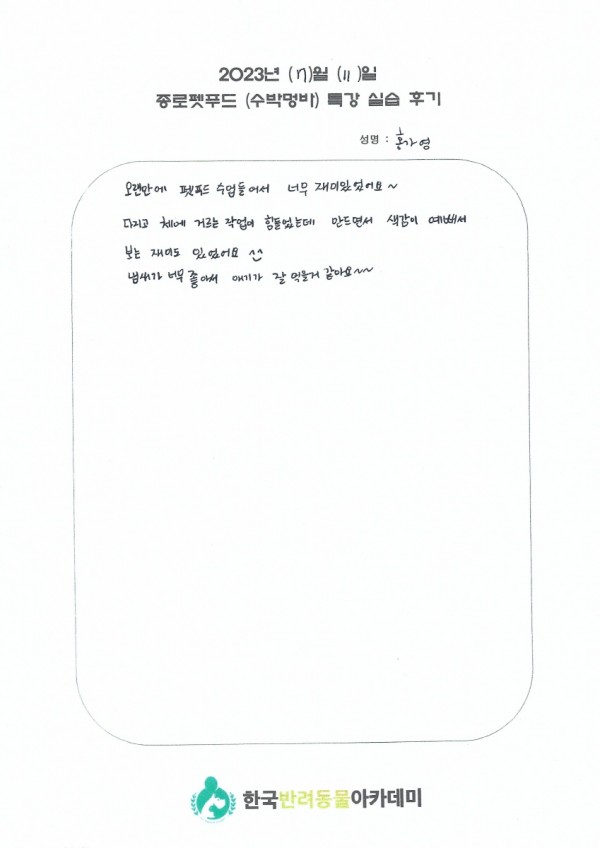 2023년 (7)월 (11)일
종로펫푸드 (수박멍바) 특강 실습 후기
성명 : 홍가영
오랜만에 펫푸드 수업들어서 너무 재미있었어요~
다지고 체에 거르는 작업이 힘들었는데 만드면서 색감이 예뻐서
보는 재미도 있었어요 ^^
냄새가 너무 좋아서 애기가 잘 먹을거 같아요~~
한국반려동물아카데미